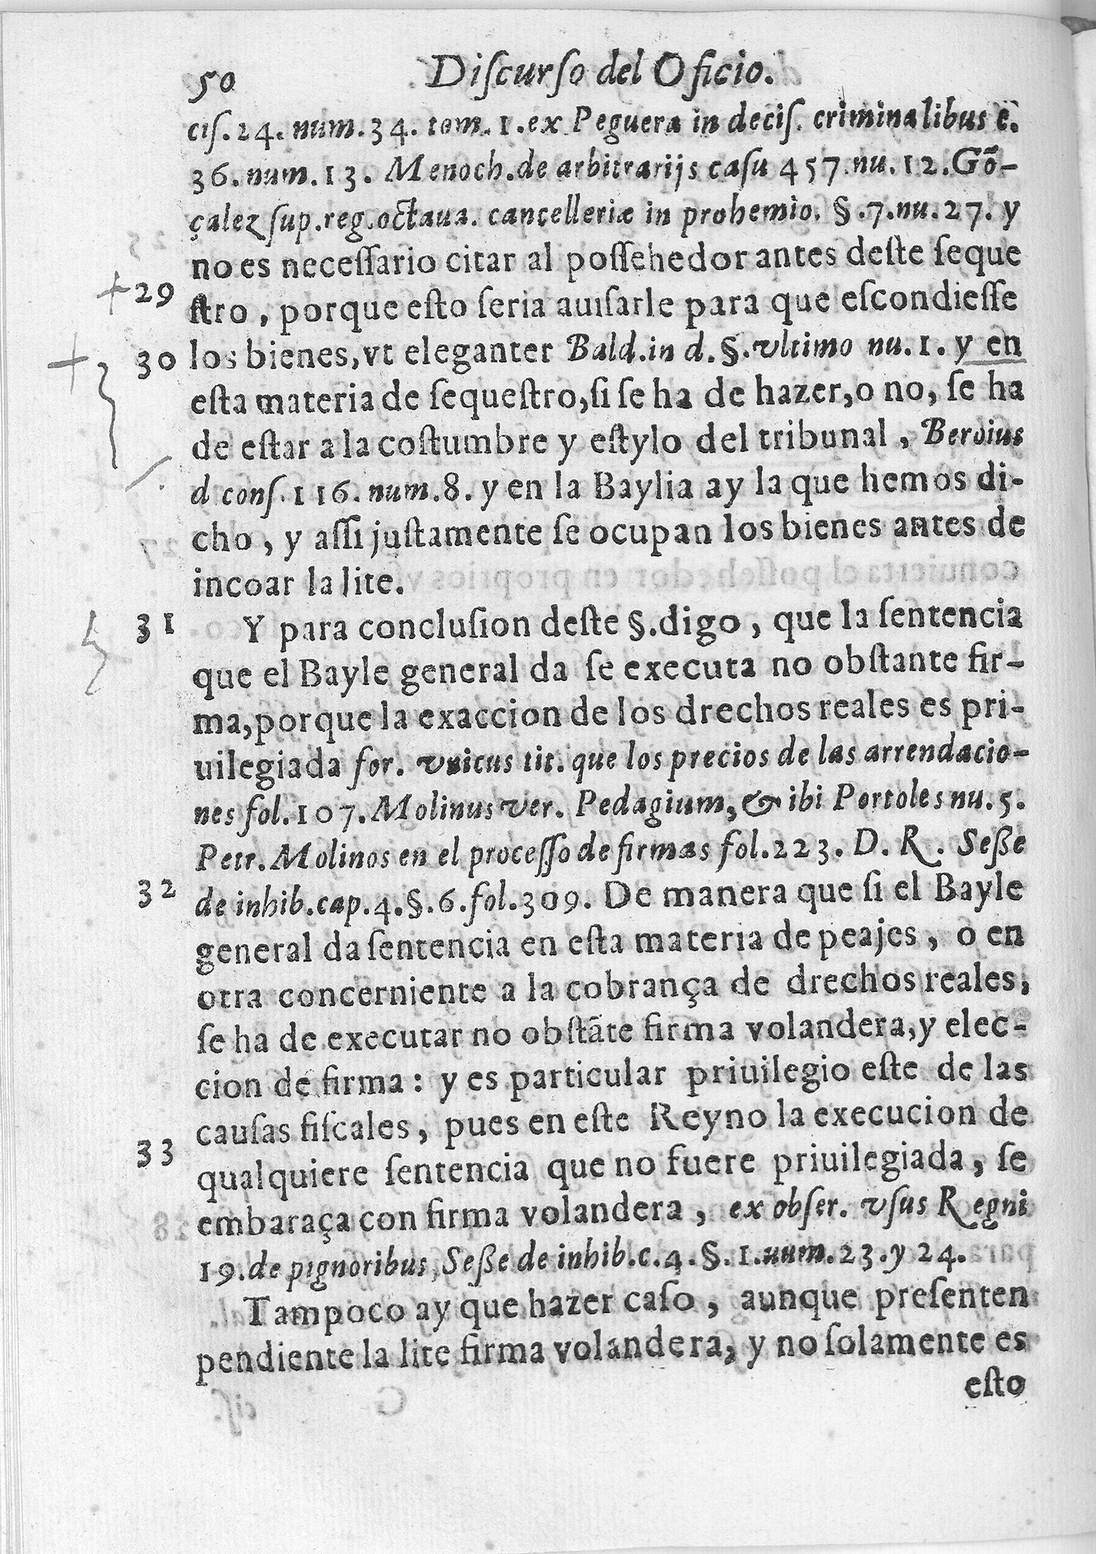 50 Diſcurſo del Oficio.
ciſ.24. num.34. tom.1.ex Peguera in deciſ. criminalibus c̃.
36.num.13. Menoch.de arbitrarijs caſu 457.nu.12.Gõ-
çalez ſup.reg.octaua. cancelleriæ in prohemio. §.7.nu.27. y
no es neceſſario citar al poſſehedor antes deſte ſeque
29 ſtro, porque eſto ſeria auiſarle para que eſcondieſſe
30 los bienes,vt eleganter Bald.in d.§.vltimo nu.1. y en
eſta materia de ſequeſtro,ſi ſe ha de hazer,o no, ſe ha
de eſtar a la coſtumbre y eſtylo del tribunal, Beroius
d conſ.116.num.8. y en la Baylia ay la que hemos di-
cho, y aſſi juſtamente ſe ocupan los bienes antes de
incoar la lite.
31 Y para concluſion deſte §.digo, que la ſentencia
que el Bayle general da ſe executa no obſtante fir-
ma,porque la exaccion de los drechos reales es pri-
uilegiada for. vnicus tit. que los precios de las arrendacio-
nes fol.107.Molinus ver. Pedagium, & ibi Portoles nu.5.
Petr.Molinos en el proceſſo de firmas fol.223. D. R. Seße
32 de inhib.cap.4.§.6.fol.309. De manera que ſi el Bayle
general da ſentencia en eſta materia de peajes, o en
otra concerniente a la cobrança de drechos reales,
ſe ha de executar no obſtãte firma volandera,y elec-
cion de firma: y es particular priuilegio eſte de las
cauſas fiſcales, pues en eſte Reyno la execucion de
33 qualquiere ſentencia que no fuere priuilegiada, ſe
embaraça con firma volandera, ex obſer. vſus Regni
19.de pignoribus, Seße de inhib.c.4.§.1.uum.23.y 24.
Tampoco ay que hazer caſo, aunque preſenten
pendiente la lite firma volandera, y no ſolamente es
eſto